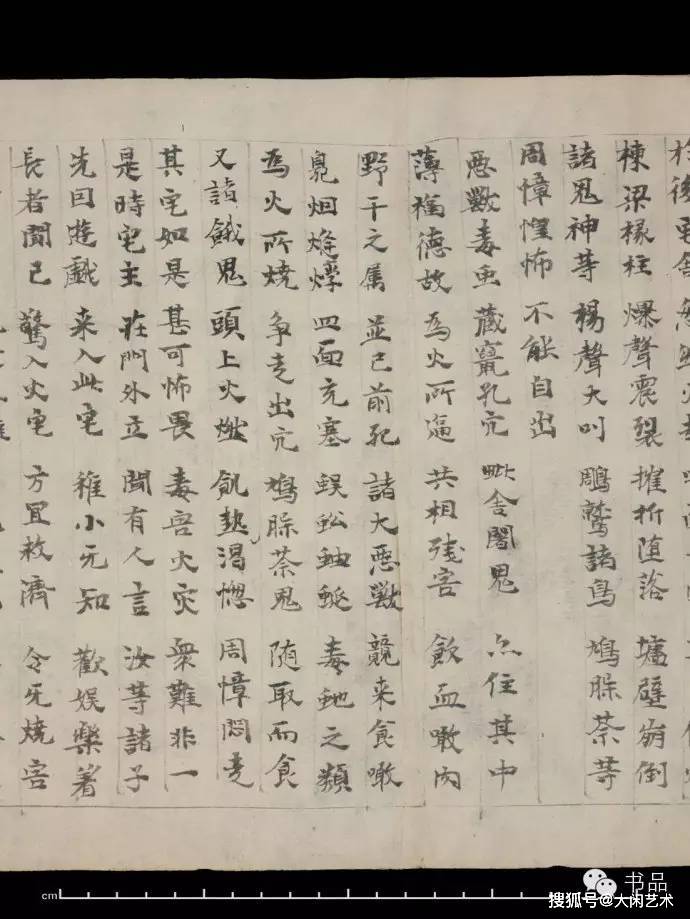 於後宅舍
棟梁椽柱 爆聲震裂 摧折堕落 墻壁崩倒
諸鬼神等 揚聲大叫 鵰鷲諸鳥 鳩槃荼等
周慞惶怖 不能自出
惡獸毒虫 藏竄孔穴 毗舍闍鬼 亦住其中
薄福德故 為火所逼 共相殘害 飲血噉肉
野干之屬 並已前死 諸大惡獸 競来食噉
臭烟熢㶿 四面充塞 蜈蚣蚰蜒 毒虵之類
為火所燒 爭走出穴 鳩槃荼鬼 隨取而食
又諸餓鬼 頭上火燃 飢熱渴惱 周慞悶走
其宅如是 甚可怖畏 毒害火灾 衆難非一
是時宅主 在門外立 聞有人言 汝等諸子
先因遊戲 来入此宅 稚小无知 歡娛樂著
長者聞已 驚入火宅 方宜救濟 令无燒害
cm
书品
搜狐号@大闲艺术